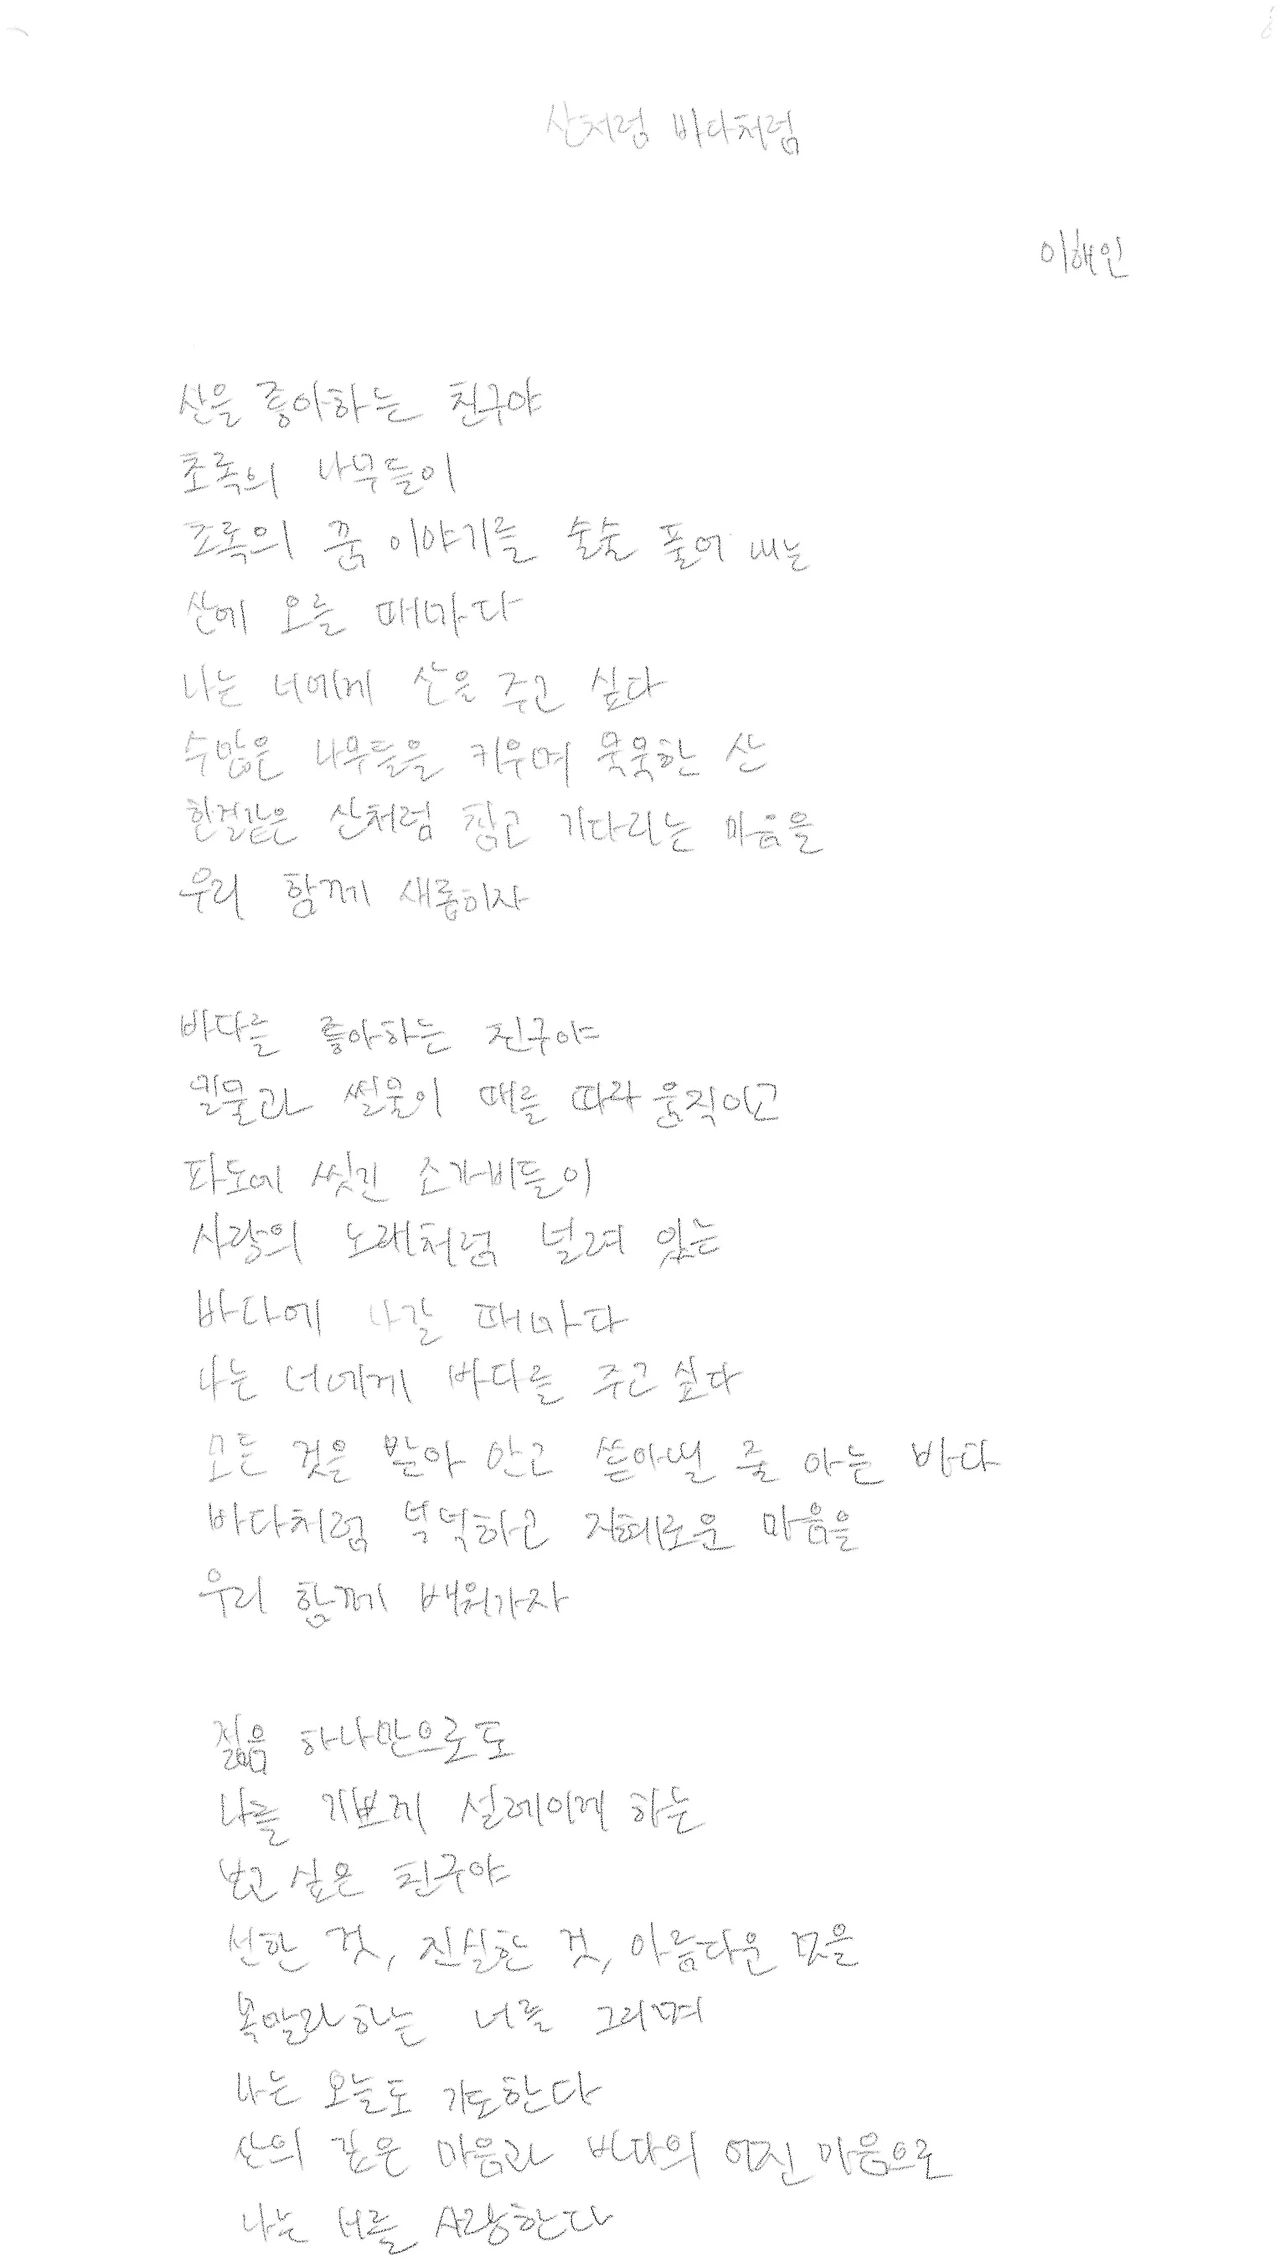 산처럼 바다처럼
이해인
산을 좋아하는 친구야
초록의 나무들이
초록의 꿈 이야기를 술술 풀어 내는
산에 오를 때마다
나는 너에게 산을 주고 싶다
수많은 나무들을 키우며 묵묵한 산
한결같은 산처럼 참고 기다리는 마음을
우리 함께 새롭히자
바다를 좋아하는 친구야
밀물과 썰물이 때를 따라 움직이고
파도에 씻긴 조가비들이
사랑의 노래처럼 널려 있는
바다에 나갈 때마다
나는 너에게 바다를 주고 싶다
모든 것을 받아 안고 쏟아낼 줄 아는 바다
바다처럼 넉넉하고 지혜로운 마음을
우리 함께 배워가자
젊음 하나만으로도
나를 기쁘게 설레이게 하는
보고 싶은 친구야
선한 것, 진실한 것, 아름다운 것을
목말라 하는 너를 그리며
나는 오늘도 기도한다
산의 깊은 마음과 바다의 어진 마음으로
나는 너를 사랑한다